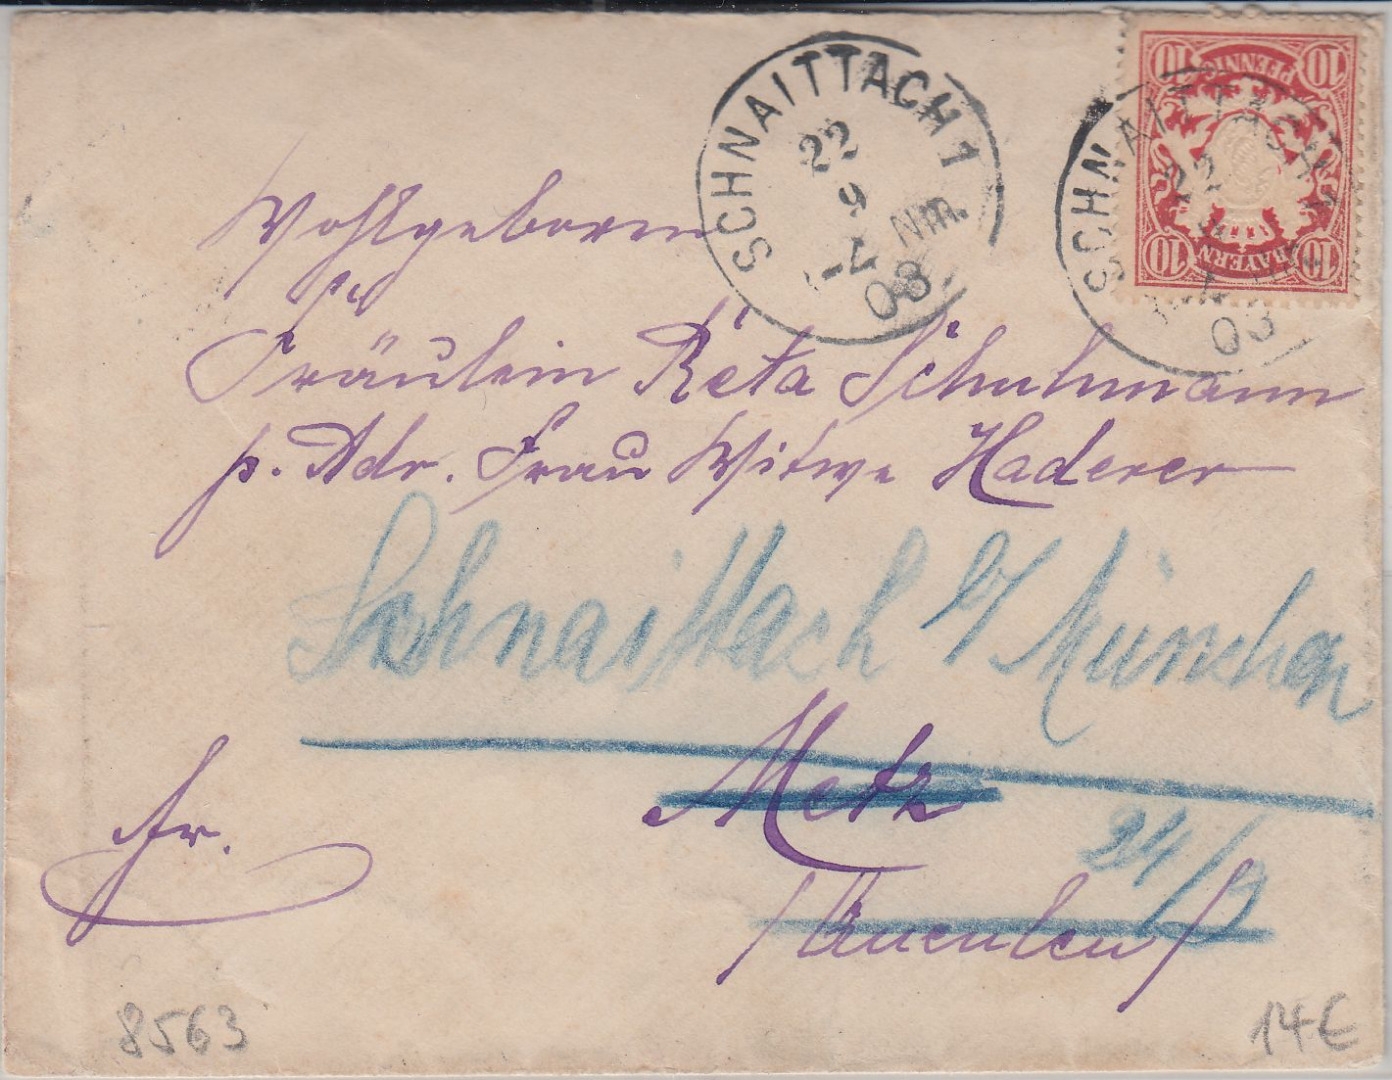 SCHNAITTACH 1
22
9
Nm.
03
10 PFENNIG 10
10 BAYERN 10
SCHNAITTACH 1
22
03
Wohlgeboren
Fräulein Reta Schuhmann
p. Adr. Frau Witwe Haderer
Schnaittach b/ München
Metz
24/9
Fr.
8563
14€